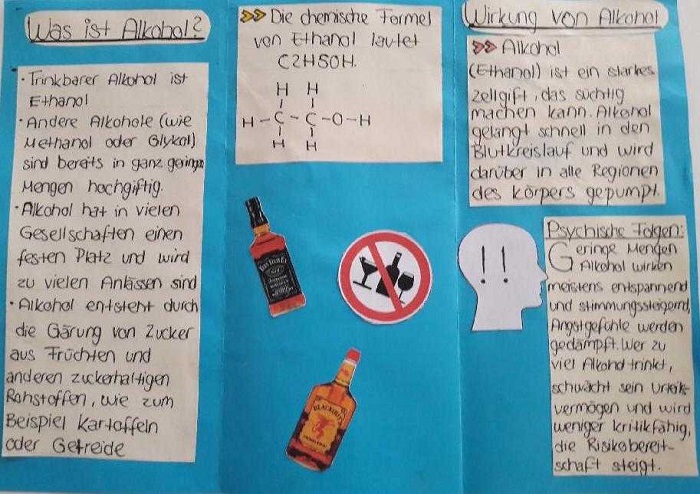 Was ist Alkohol?
· Trinkbarer Alkohol ist
Ethanol
· Andere Alkohole (wie
Methanol oder Glykol)
sind bereits in ganz geringen
Mengen hochgiftig.
· Alkohol hat in vielen
Gesellschaften einen
festen Platz und wird
zu vielen Anlässen sind
· Alkohol entsteht durch
die Gärung von Zucker
aus Früchten und
anderen zuckerhaltigen
Rohstoffen, wie zum
Beispiel Kartoffeln
oder Getreide
Die chemische Formel
von Ethanol lautet
C2H5OH.
H H
H-C-C-O-H
H H
Wirkung von Alkohol
Alkohol
(Ethanol) ist ein starkes
Zellgift, das süchtig
machen kann. Alkohol
gelangt schnell in den
Blutkreislauf und wird
darüber in alle Regionen
des körpers gepumpt.
!!
Psychische Folgen:
Geringe Mengen
Alkohol wirken
meistens entspannend
und stimmungssteigernd
Angstgefühle werden
gedämpft. Wer zu
viel Alkohol trinkt,
schwächt sein Urteils-
vermögen und wird
weniger kritikfähig,
die Risikobereit-
schaft steigt.